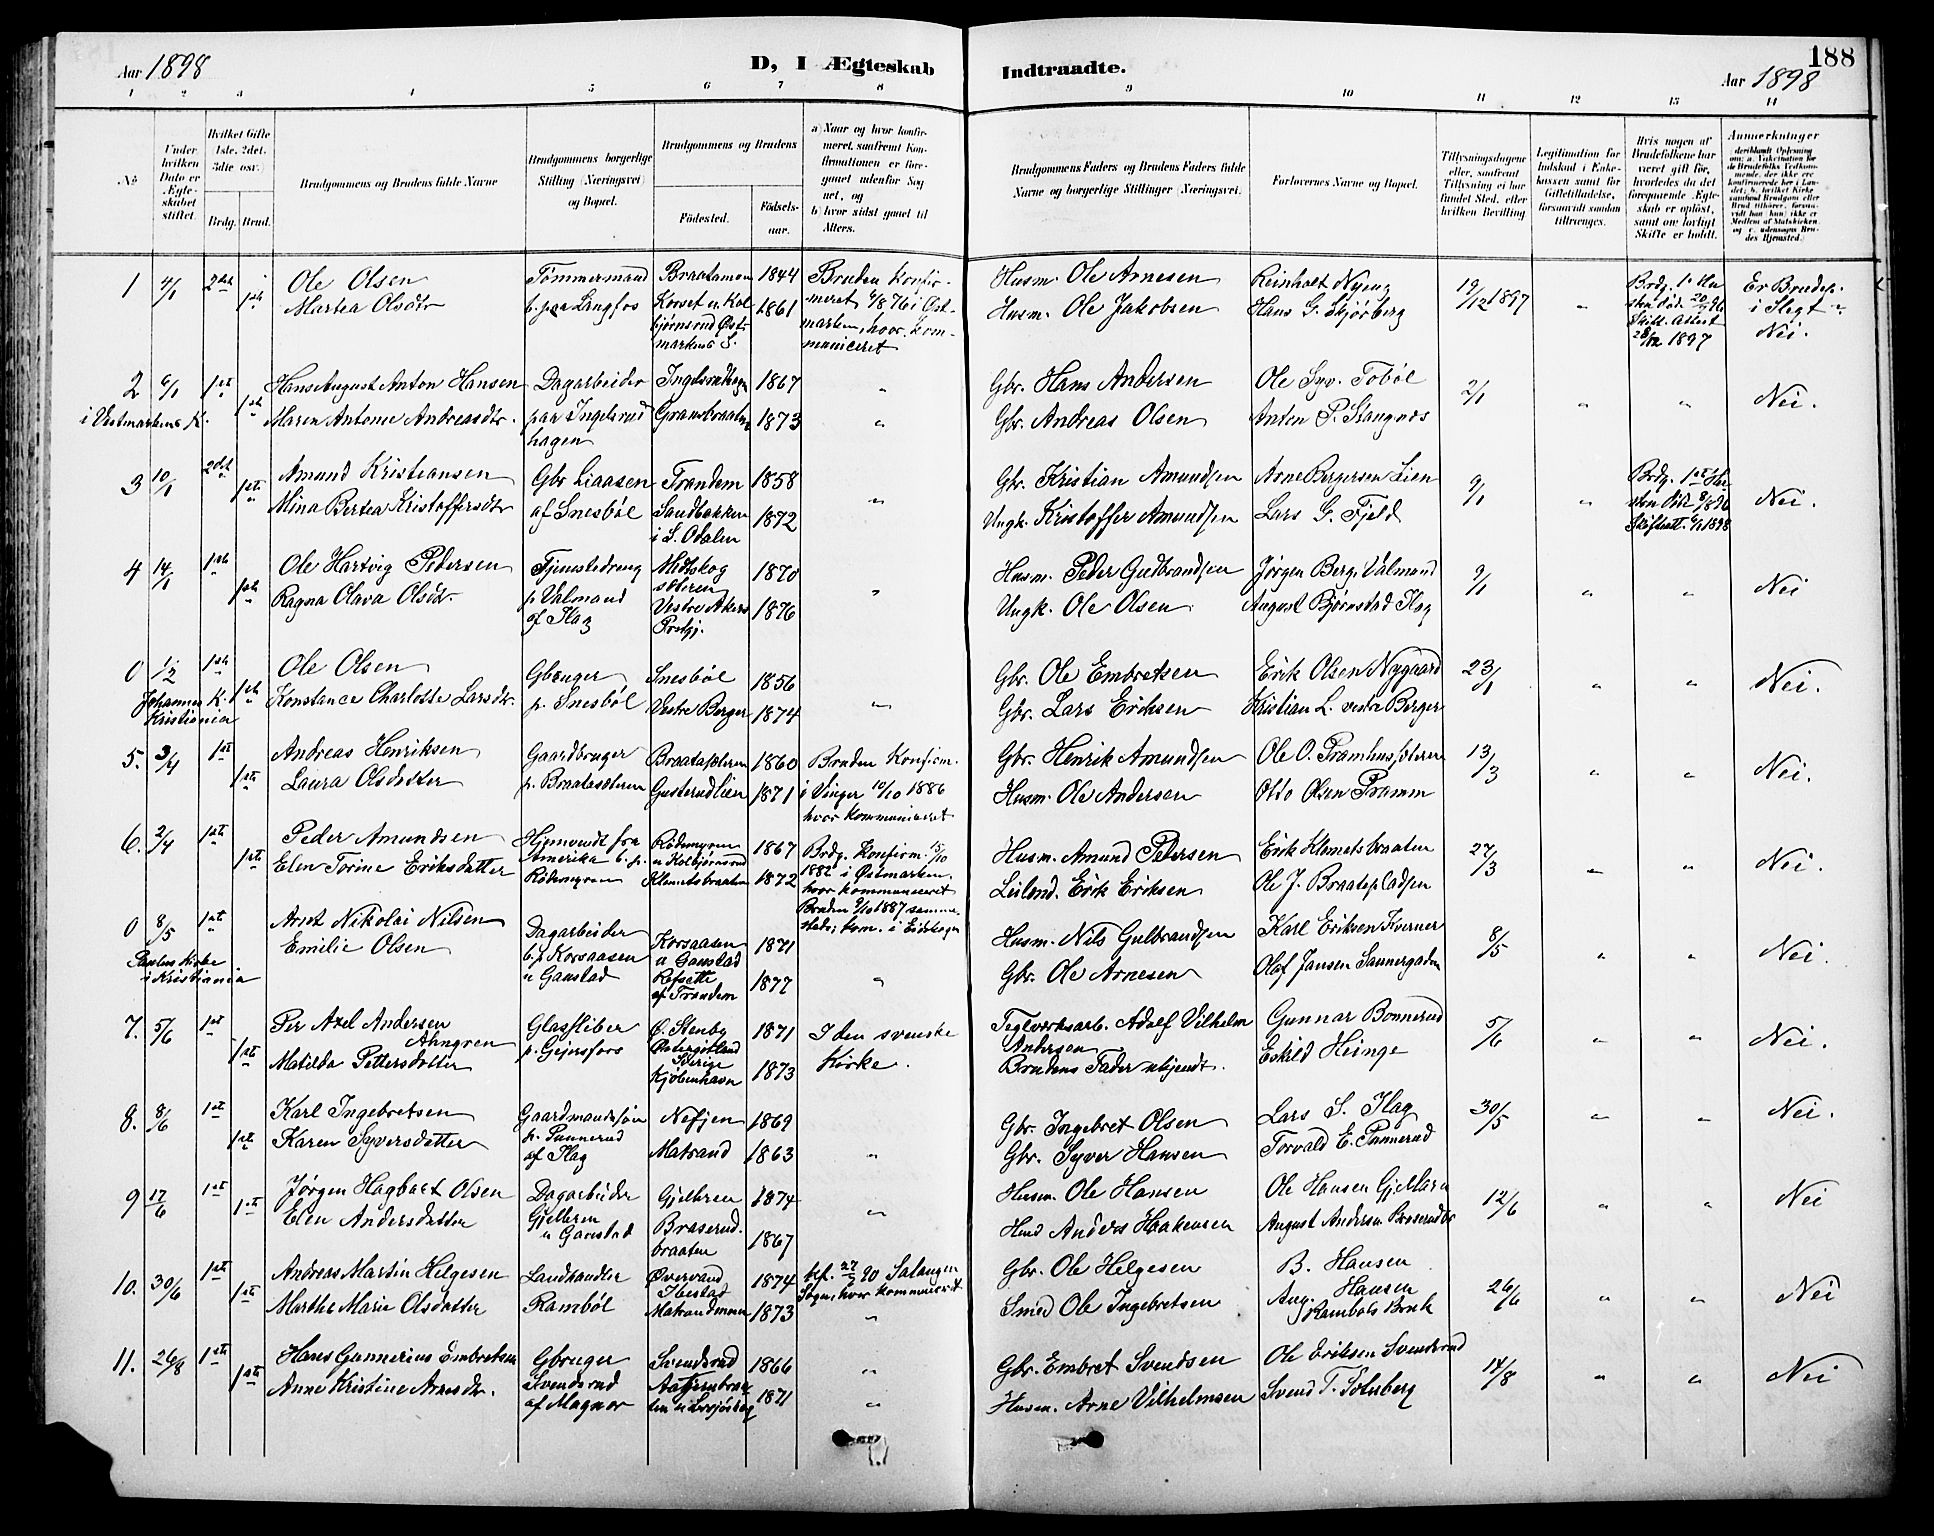 Aar 1898
D, I Ægteskab
Indtraadte.
188
Aar 1898
1 2 3 4 5 6 7 8 9 10 11 12 13 14
No
Under hvilken Dato er Ægteskabet stiftet.
Hvilket Gifte 1ste. 2det. 3die osv.
Brdg. Brud.
Brudgommens og Brudens fulde Navne
Brudgommens borgerlige Stilling (Næringsvei) og Bopæl.
Brudgommens og Brudens
Fødested.
Fødselsaar.
a) Naar og hvor konfirmeret, saafremt Konfirmationen er foregaaet udenfor Sognet, og
b) hvor sidst gaaet til Alters.
Brudgommens Faders og Brudens Faders fulde Navne og borgerlige Stillinger (Næringsvei).
Forlovernes Navne og Bopæl.
Tillysningsdagene eller, saafremt Tillysning ei har fundet Sted, efter hvilken Bevilling
Legitimation for Indskud i Enkekassen samt for Giftetilladelse, forsaavidt saadan tiltrænges.
Hvis nogen af Brudefolkene har været gift før, hvorledes da det foregaaende Ægteskab er opløst, samt om lovligt Skifte er holdt.
Anmærkninger
1 4/1 2det 1ste Ole Olsen Tømmermand Braatamoen 1844 Bruden Konfir- Husm. Ole Arnesen Reinholt Nyeng 19/12 1897 " Er Brudef.
Martea Olsdtr b. paa Langfos Korset u. Kol- 1861 meret 6/8 76 i Øst- Husm. Ole Jakobsen Hans G. Skjørberg i Slegt
bjørnsrud Øst- marken, hvor kom-
markens S. municeret 1897 Nei.
2 6/1 1st 1ste Hans August Anton Hansen Dagarbeider Ingelsrudhagen 1867 " Gbr. Hans Andersen Ole Syv. Tobøl 2/1 " " Nei.
i Vestmarkens K. Maren Antonie Andreasdtr. paa Ingelsrud Gransbraaten 1873 " Gbr. Andreas Olsen Anton P. Stangnæs
hagen
3 10/1 2det 1ste Amund Kristiansen Gbr Liaasen Trandem 1858 " Gbr. Kristian Amundsen Arne Bergersen Lien 9/1 " Nei.
Mina Bertea Kristoffersdtr af Snesbøl Sandbakken 1872 Ungk. Kristoffer Amundsen Lars G. Fjeld
i S. Odalen
4 14/1 1ste 1ste Ole Hartvig Pedersen Tjenestedreng Midtskog 1870 " Husm. Peder Gudbrandsen Jørgen Berg. Valmand 9/1 " " Nei
Ragna Olava Olsdtr. p. Valmand sæteren
af Flag Vestre Akers 1876 Ungk. Ole Olsen August Bjørnstad Flag
Prstgj.
0 1/2 1ste 1ste Ole Olsen Gbruger Snesbøl 1856 " Gbr. Ole Embretsen Erik Olsen Nygaard 23/1 " " Nei.
Johannes K. Konstance Charlotte Larsdtr. p. Snesbøl Vestre Berger 1874 Gbr. Lars Eriksen Kristian L. vestre Berger
Kristiania
5. 3/4 1st 1ste Andreas Henriksen Gaardbruger Braatasæteren 1860 Bruden Konfirm. Gbr. Henrik Amundsen Ole O. Pramhussæteren 13/3 " " Nei.
Laura Olsdatter p. Braatasæteren Gusterudlien 1871 i Vinger 10/10 1886 Husm. Ole Andersen Otto Olsen Pramm
hvor kommuniceret
6. 2/4 1st 1ste Peder Amundsen Hjemvendt fra Rødemyren 1867 Brdg. Konfirm 15/10 Husm. Amund Pedersen Erik Klemetsbraaten 27/3 " " Nei.
Elen Torine Eriksdatter Amerika b. p. u Kolbjørnsrud 1882 i Østmarken,
Rødemyren Klemetsbraaten 1872 hvor kommuniceret Leilend. Erik Eriksen Ole J. Braatepladsen
0 8/5 1st Arnt Nikolai Nilsen Dagarbeider Korsaasen 1871 Bruden 9/10 1887 samme- Husm. Nils Gulbrandsen Karl Eriksen Kverner 8/5 " " Nei.
Paulus Kirke Emilie Olsen b. p. Korsaasen u Ganstad steds; kom. i Eidskogen
i Kristiania u Ganstad Refsette 1877 " Gbr. Ole Arnesen Olaf Jansen Sannergaden
af Trandem
7. 5/6 1st 1ste Per Axel Andersen Glassliber Ø. Stenby 1871 I den svenske Teglværksarb. Adolf Vilhelm Gunnar Bonnerud 5/6 " " Nei.
Aangren p. Gejersfors Østergötland Kirke. Andersen
Matilda Pettersdatter Sverige Brudens Fader ukjendt. Eskild Heinge
Kjøbenhavn 1873
8. 8/6 1st 1ste Karl Ingebretsen Gaardmandssøn Nefjen 1869 " Gbr. Ingebret Olsen Lars S. Flag 30/5 " " Nei.
Karen Syversdatter p. Pannerud Matrand 1863 Gbr. Syver Hansen Torvald E. Pannerud
af Flag
9 17/6 1st 1ste Jørgen Hagbart Olsen Dagarbeider Gjelbren 1874 " Husm. Ole Hansen Ole Hansen Gjelbren 12/6 " " Nei
Elen Andersdatter Gjelbren Braserud- 1867 Husm Anders Haakensen August Andersen Braserudbr
u Ganstad braaten
10. 30/6 1st 1ste Andreas Martin Helgesen Landhandler Øvervand 1874 kf. 27/7 90 Salangen Gbr. Ole Helgesen B. Hansen 26/6 " " Nei
Marthe Marie Olsdatter Rambøl Ibestad Sogn, hvor kommuniceret Aug. Hansen
Matrandmoen 1873 " Smed Ole Ingebretsen Rambøls Bruk
11. 26/8 1st 1ste Hans Gunnerius Embretsen Gbruger Svendsrud 1866 " Gbr. Embret Svendsen Ole Eriksen Svendsrud 14/8 " " Nei
Anne Kristine Arnesdtr. Svendsrud 1871 " Husm. Arne Vilhelmsen Svend T. Solnberg
af Magnor